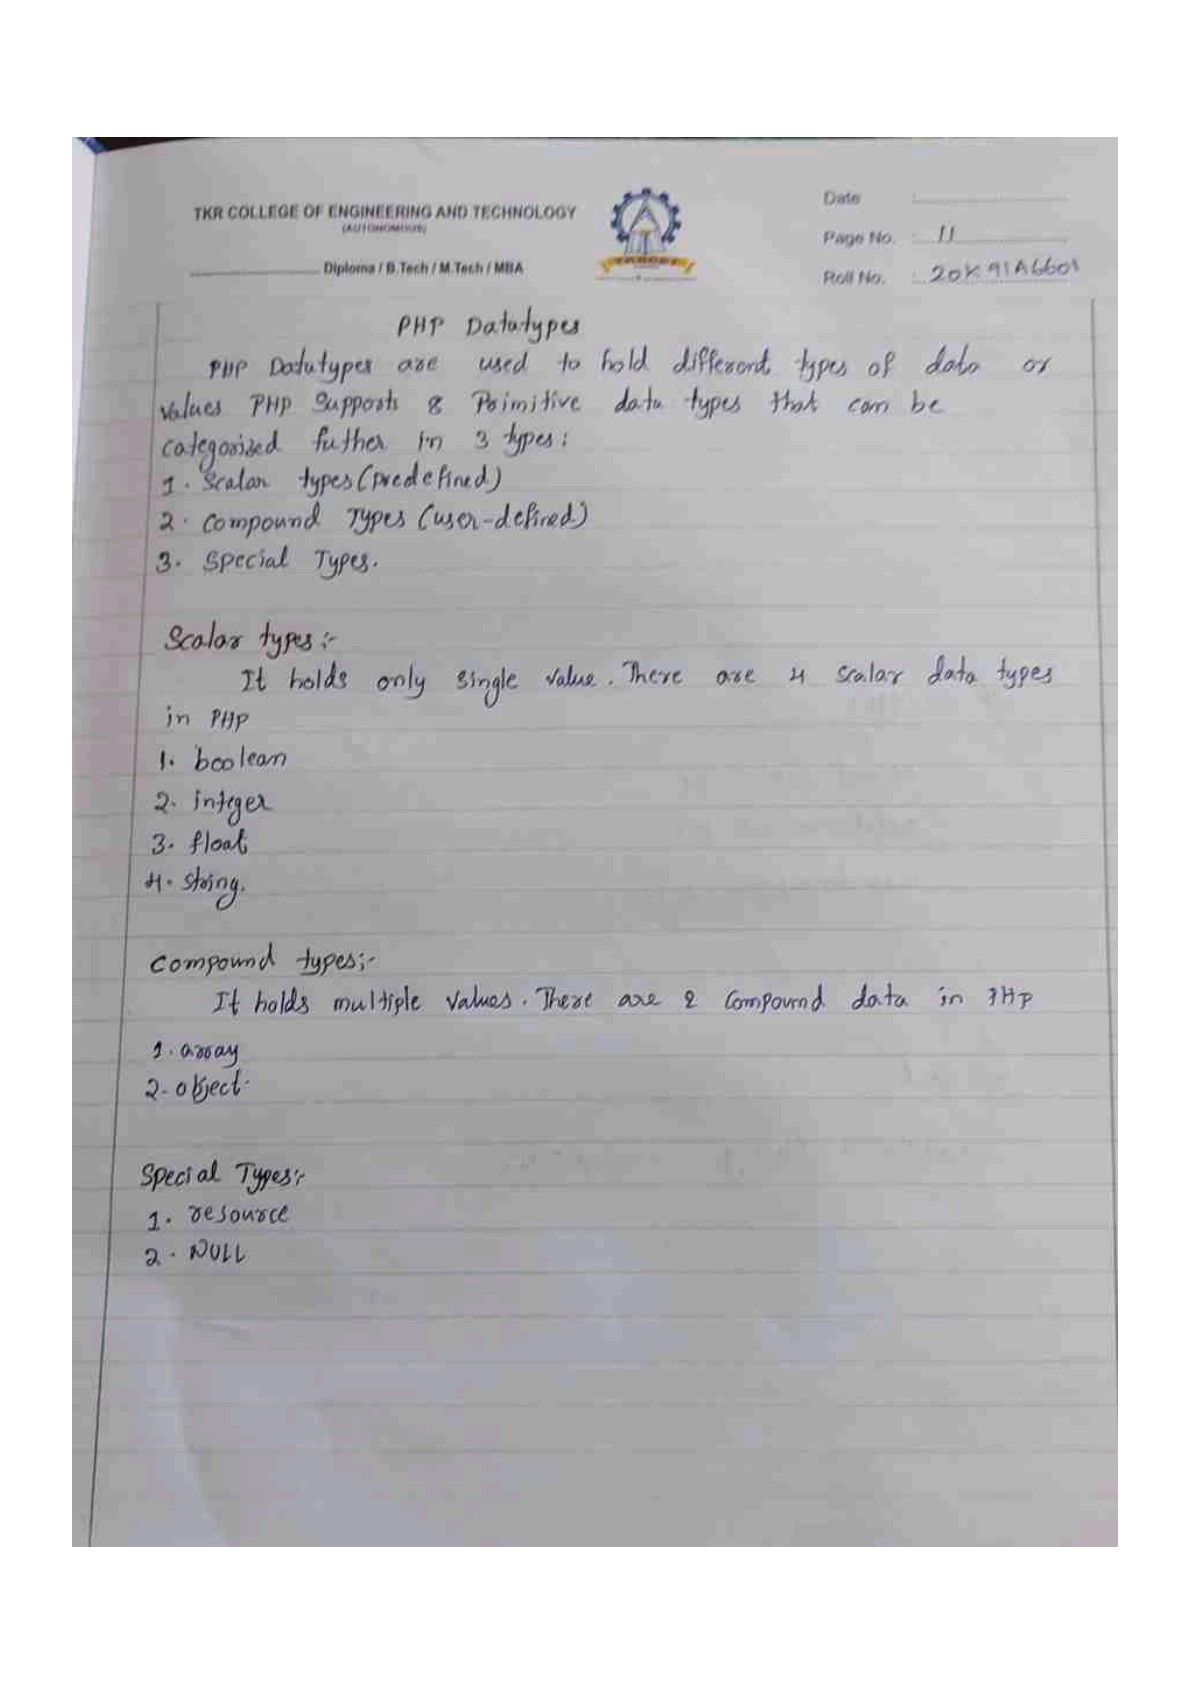 TKR COLLEGE OF ENGINEERING AND TECHNOLOGY
(AUTONOMOUS)
Diploma / B.Tech / M.Tech / MBA
Date :
Page No. : 11
Roll No. : 20K91A6601
PHP Datatypes
PHP Datatypes are used to hold different types of data or
values PHP Supports 8 Primitive data types that can be
categorized futher in 3 types:
1. Scalar types (predefined)
2. Compound Types (user-defined)
3. Special Types.
Scalar types :-
It holds only single value. There are 4 scalar data types
in PHP
1. boolean
2. integer
3. float
4. string.
Compound types;-
It holds multiple values. There are 2 compound data in PHP
1. array
2. object.
Special Types:-
1. resource
2. NULL